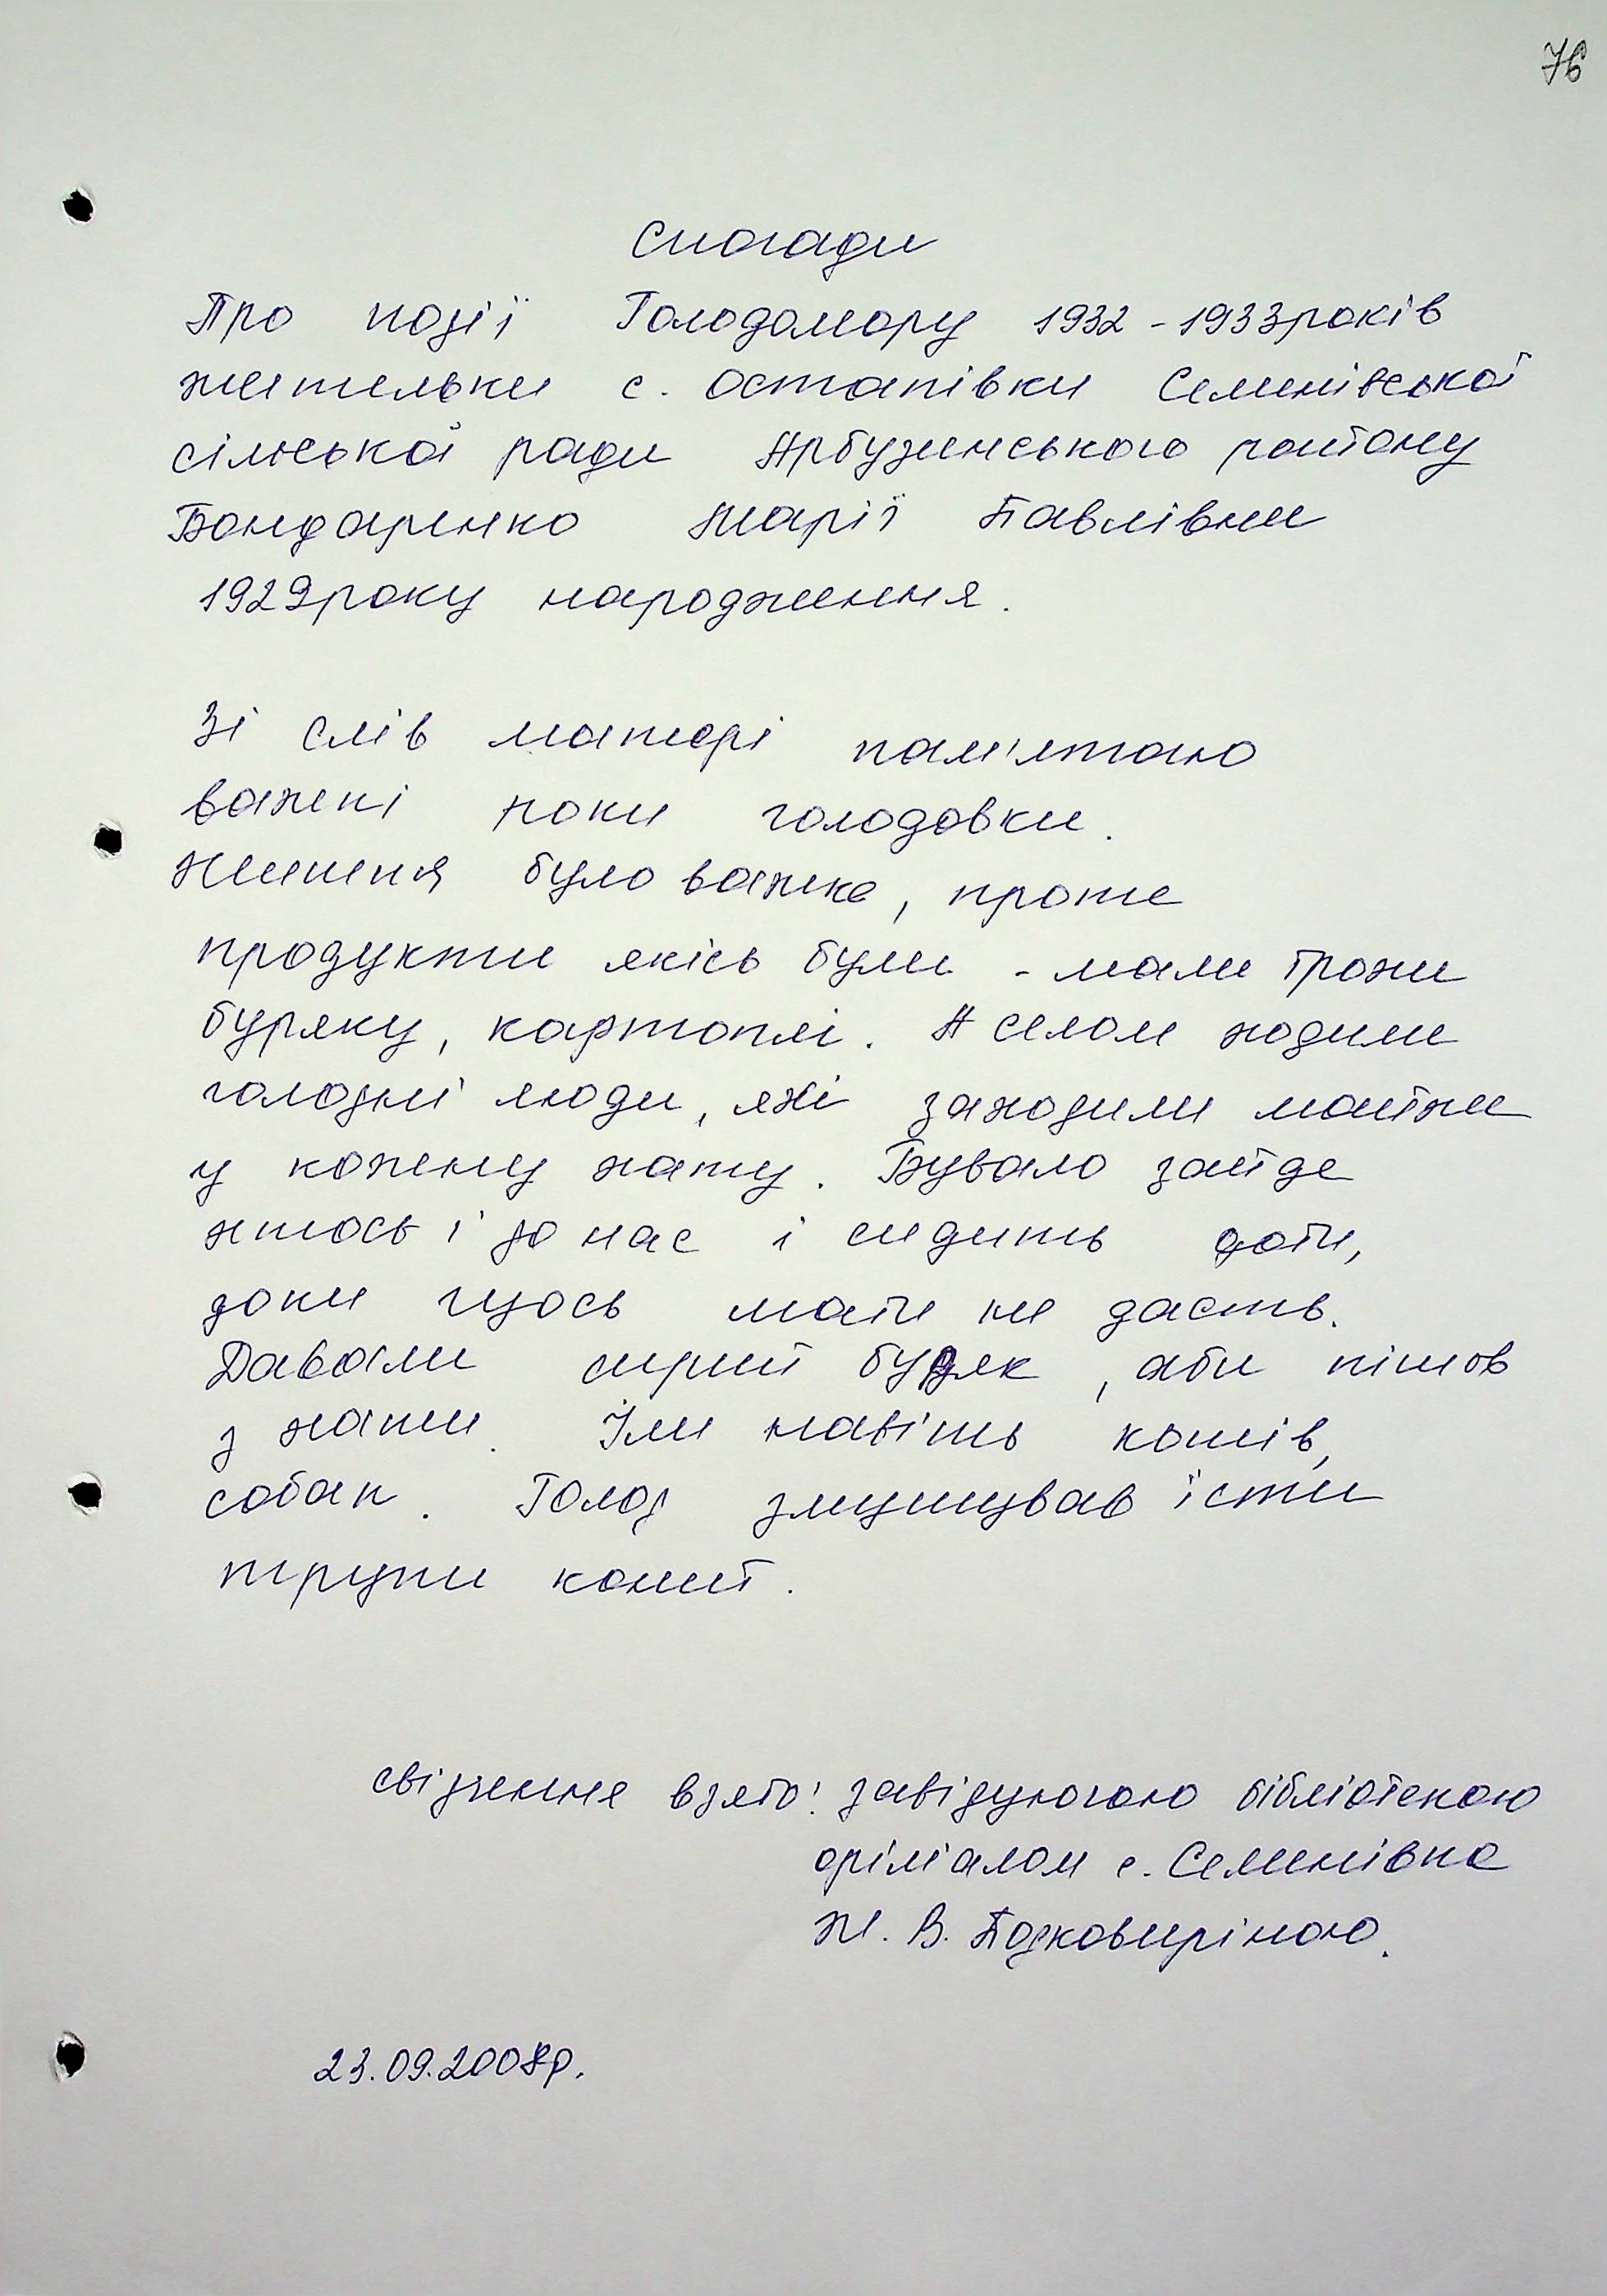 76
Спогади
Про події Голодомору 1932-1933років
жительки с. Остапівки Семенівської
сільської ради Арбузинського району
Бондаренко Марії Павлівни
1929року народження.
Зі слів матері пам'ятаю
важкі роки голодовки.
Життя було важке, проте
продукти якісь були - мали трохи
буряку, картоплі. А селом ходили
голодні люди, які заходили майже
у кожену хату. Бувало зайде
хтось і до нас і сидить доти,
доки щось мати не дасть.
Давали сирий буряк, аби пішов
з хати. Їли навіть котів,
собак. Голод змушував їсти
трупи коней.
свідчення взято: завідуючою бібліотекою
філіалом с. Семенівка
Ж. В. Подковиріною.
23.09.2008р.